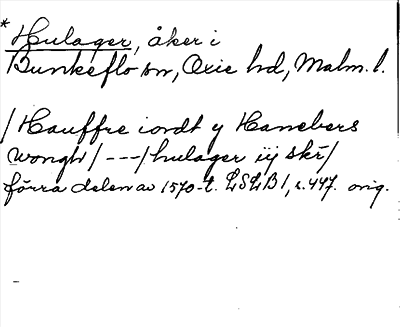 * Hulager, åker i
Bunkeflo sn, Oxie hd, Malm. l.
/ Hauffre iordt y Hanebers
wongh / --- / hulager iij skr /
förra delen av 1570-t. LSLB 1, s. 447. orig.